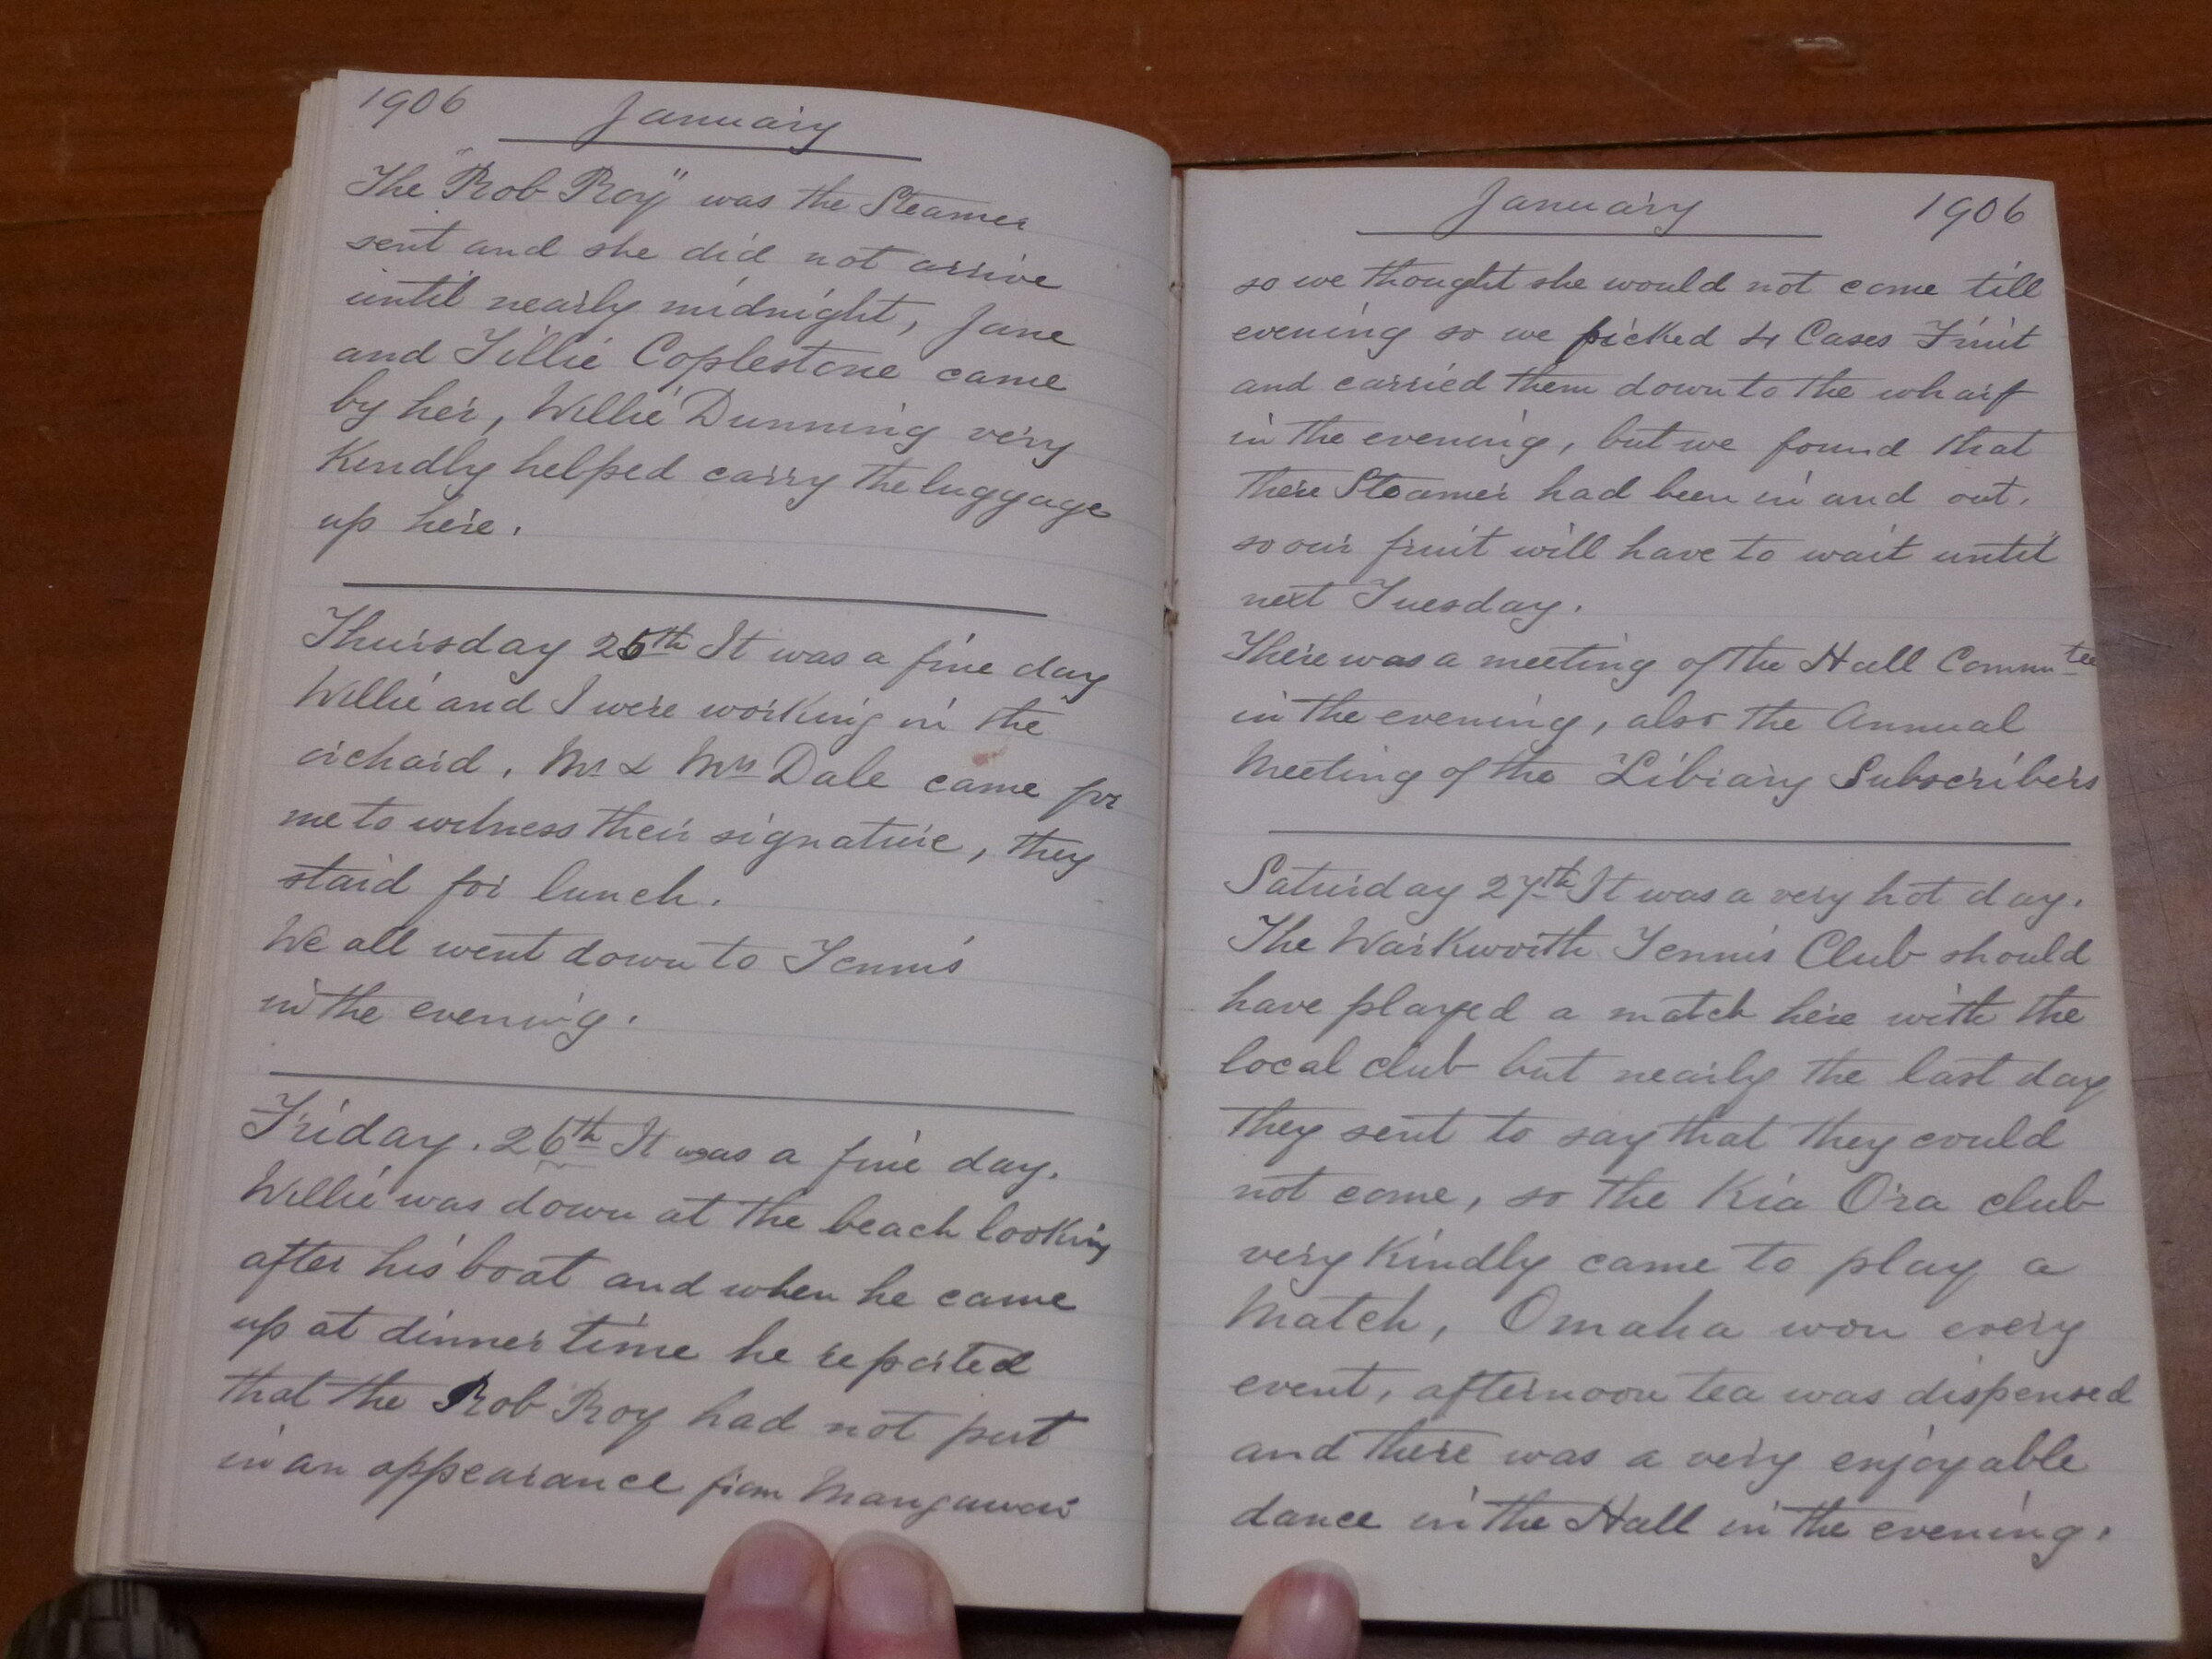 1906 January
The "Rob Roy" was the Steamer
sent and she did not arrive
until nearly midnight, Jane
and Tillie Coplestone came
by her, Willie Dunning very
Kindly helped carry the luggage
up here.
Thursday 25th It was a fine day
Willie and I were working in the
orchard. Mr & Mrs Dale came for
me to witness their signature, they
staid for lunch.
We all went down to Tennis
in the evening.
Friday. 26th It was a fine day.
Willie was down at the beach looking
after his boat and when he came
up at dinner time he reported
that the Rob Roy had not put
in an appearance from Mangawai
January 1906
so we thought she would not come till
evening so we picked 4 Cases Fruit
and carried them down to the wharf
in the evening, but we found that
there Steamer had been in and out.
so our fruit will have to wait until
next Tuesday.
There was a meeting of the Hall Commtee
in the evening, also the Annual
Meeting of the Library Subscribers
Saturday 27th It was a very hot day.
The Warkworth Tennis Club should
have played a match here with the
local club but nearly the last day
they sent to say that they could
not come, so the Kia Ora club
very Kindly came to play a
Match, Omaha won every
event, afternoon tea was dispensed
and there was a very enjoyable
dance in the Hall in the evening.